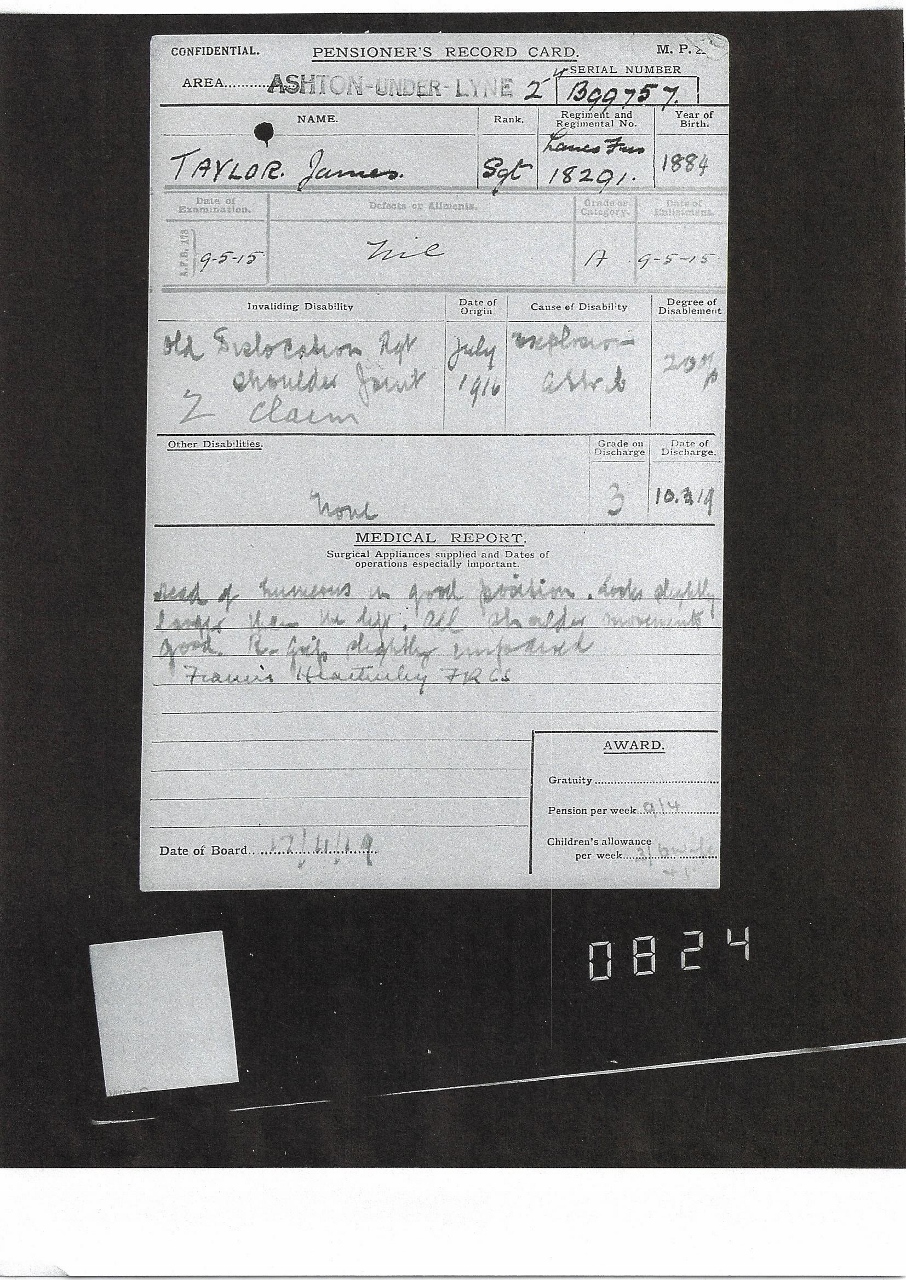 CONFIDENTIAL. PENSIONER'S RECORD CARD. M. P.
AREA.........ASHTON-UNDER-LYNE 2 SERIAL NUMBER
B99757.
NAME. Rank. Regiment and Regimental No. Year of Birth.
TAYLOR. James. Sgt Lancs Fus 18291. 1884
Date of Examination. Defects or Ailments. Grade or Category. Date of Enlistment.
A.F.B. 178 9-5-15 Nil A 9-5-15
Invaliding Disability Date of Origin Cause of Disability Degree of Disablement
Old Dislocation Rgt July explosion 20%
Shoulder Joint 1916 Attrib
2 Claim
Other Disabilities. Grade on Discharge Date of Discharge.
None 3
MEDICAL REPORT.
Surgical Appliances supplied and Dates of
operations especially important.
Head of humerus in good position. Looks slightly
larger than the left. All shoulder movements
good. R. Grip slightly impaired
Francis FRCS
AWARD.
Gratuity
Pension per week 9/4
Children's allowance
per week
Date of Board. 17/4/19
0824